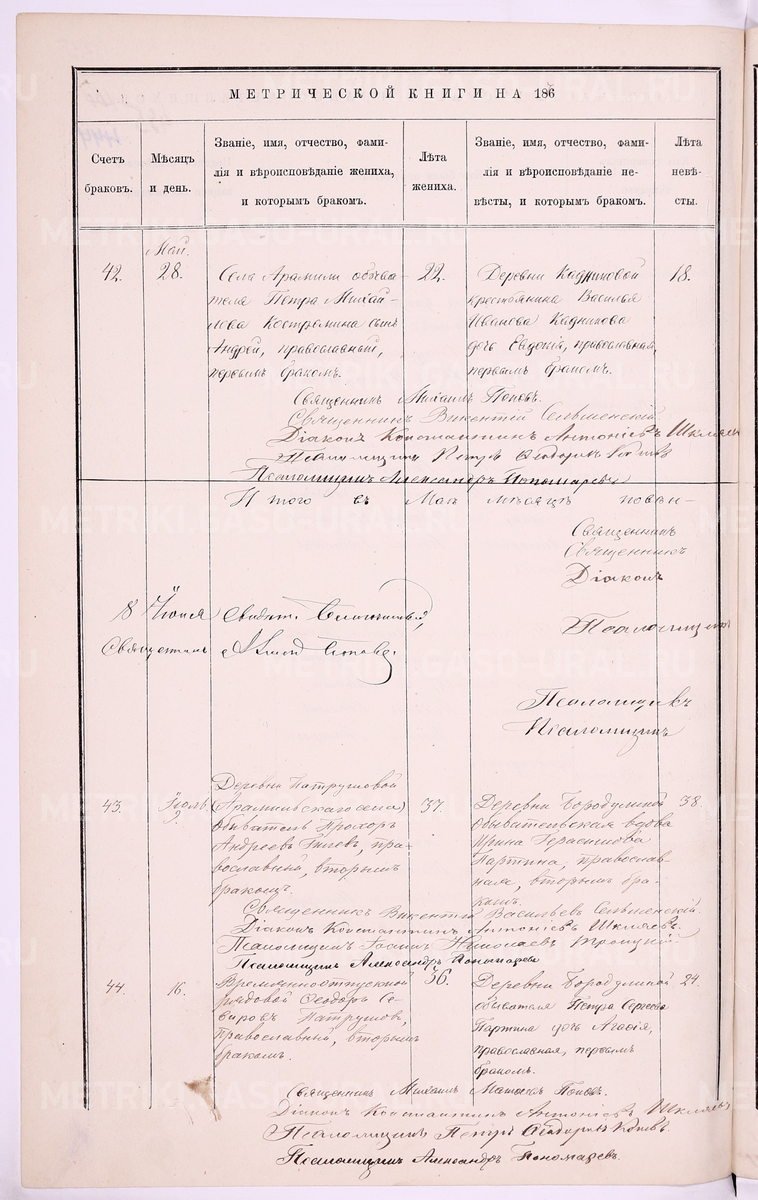 МЕТРИЧЕСКОЙ КНИГИ НА 186
Счетъ браковъ.
Мѣсяцъ и день.
Званіе, имя, отчество, фами-
лія и вѣроисповѣданіе жениха,
и которымъ бракомъ.
Лѣта жениха.
Званіе, имя, отчество, фами-
лія и вѣроисповѣданіе не-
вѣсты, и которымъ бракомъ.
Лѣта невѣ-
сты.
Май.
42.
28.
Села Арамили обыва-
теля Петра Михай-
лова Костромина сынъ
Андрей, православный,
первымъ бракомъ.
22.
Деревни Кадниковой
крестьянина Василья
Иванова Кадникова
дочь Евдокія, православная,
первымъ бракомъ.
18.
Священникъ Михаилъ Поповъ.
Священникъ Викентій Сельменскій
Діаконъ Константинъ Антоніевъ Шкляевъ
Псаломщикъ Петръ Ѳеодоровъ
Псаломщикъ Александръ Пономаревъ
Итого въ Маѣ мѣсяцѣ повѣн-
Священникъ
Священникъ
Діаконъ
8 Іюня Свидѣт.
Священникъ
Псаломщикъ
Псаломщикъ
Псаломщикъ
43.
Іюль
9.
Деревни Патрушовой
(Арамильскаго села)
обыватель Прохоръ
Андреевъ Гилевъ, пра-
вославный, вторымъ
бракомъ.
37.
Деревни Бородулиной
обывательская вдова
Ирина Герасимова
Партина, православ-
ная, вторымъ бра-
комъ.
38.
Священникъ Викентій Васильевъ Сельменскій.
Діаконъ Константинъ Антоніевъ Шкляевъ.
Псаломщикъ Іоаннъ Николаевъ Троицкій.
Псаломщикъ Александръ Пономаревъ
44.
16.
Временноотпускной
рядовой Ѳеодоръ
Патрушовъ,
православный, вторымъ
бракомъ.
36.
Деревни Бородулиной
обывателя Петра Сергеева
Партина дочь Агафія,
православная, первымъ
бракомъ.
24.
Священникъ Михаилъ Поповъ.
Діаконъ Константинъ Антоніевъ Шкляевъ
Псаломщикъ Петръ Ѳеодоровъ
Псаломщикъ Александръ Пономаревъ.